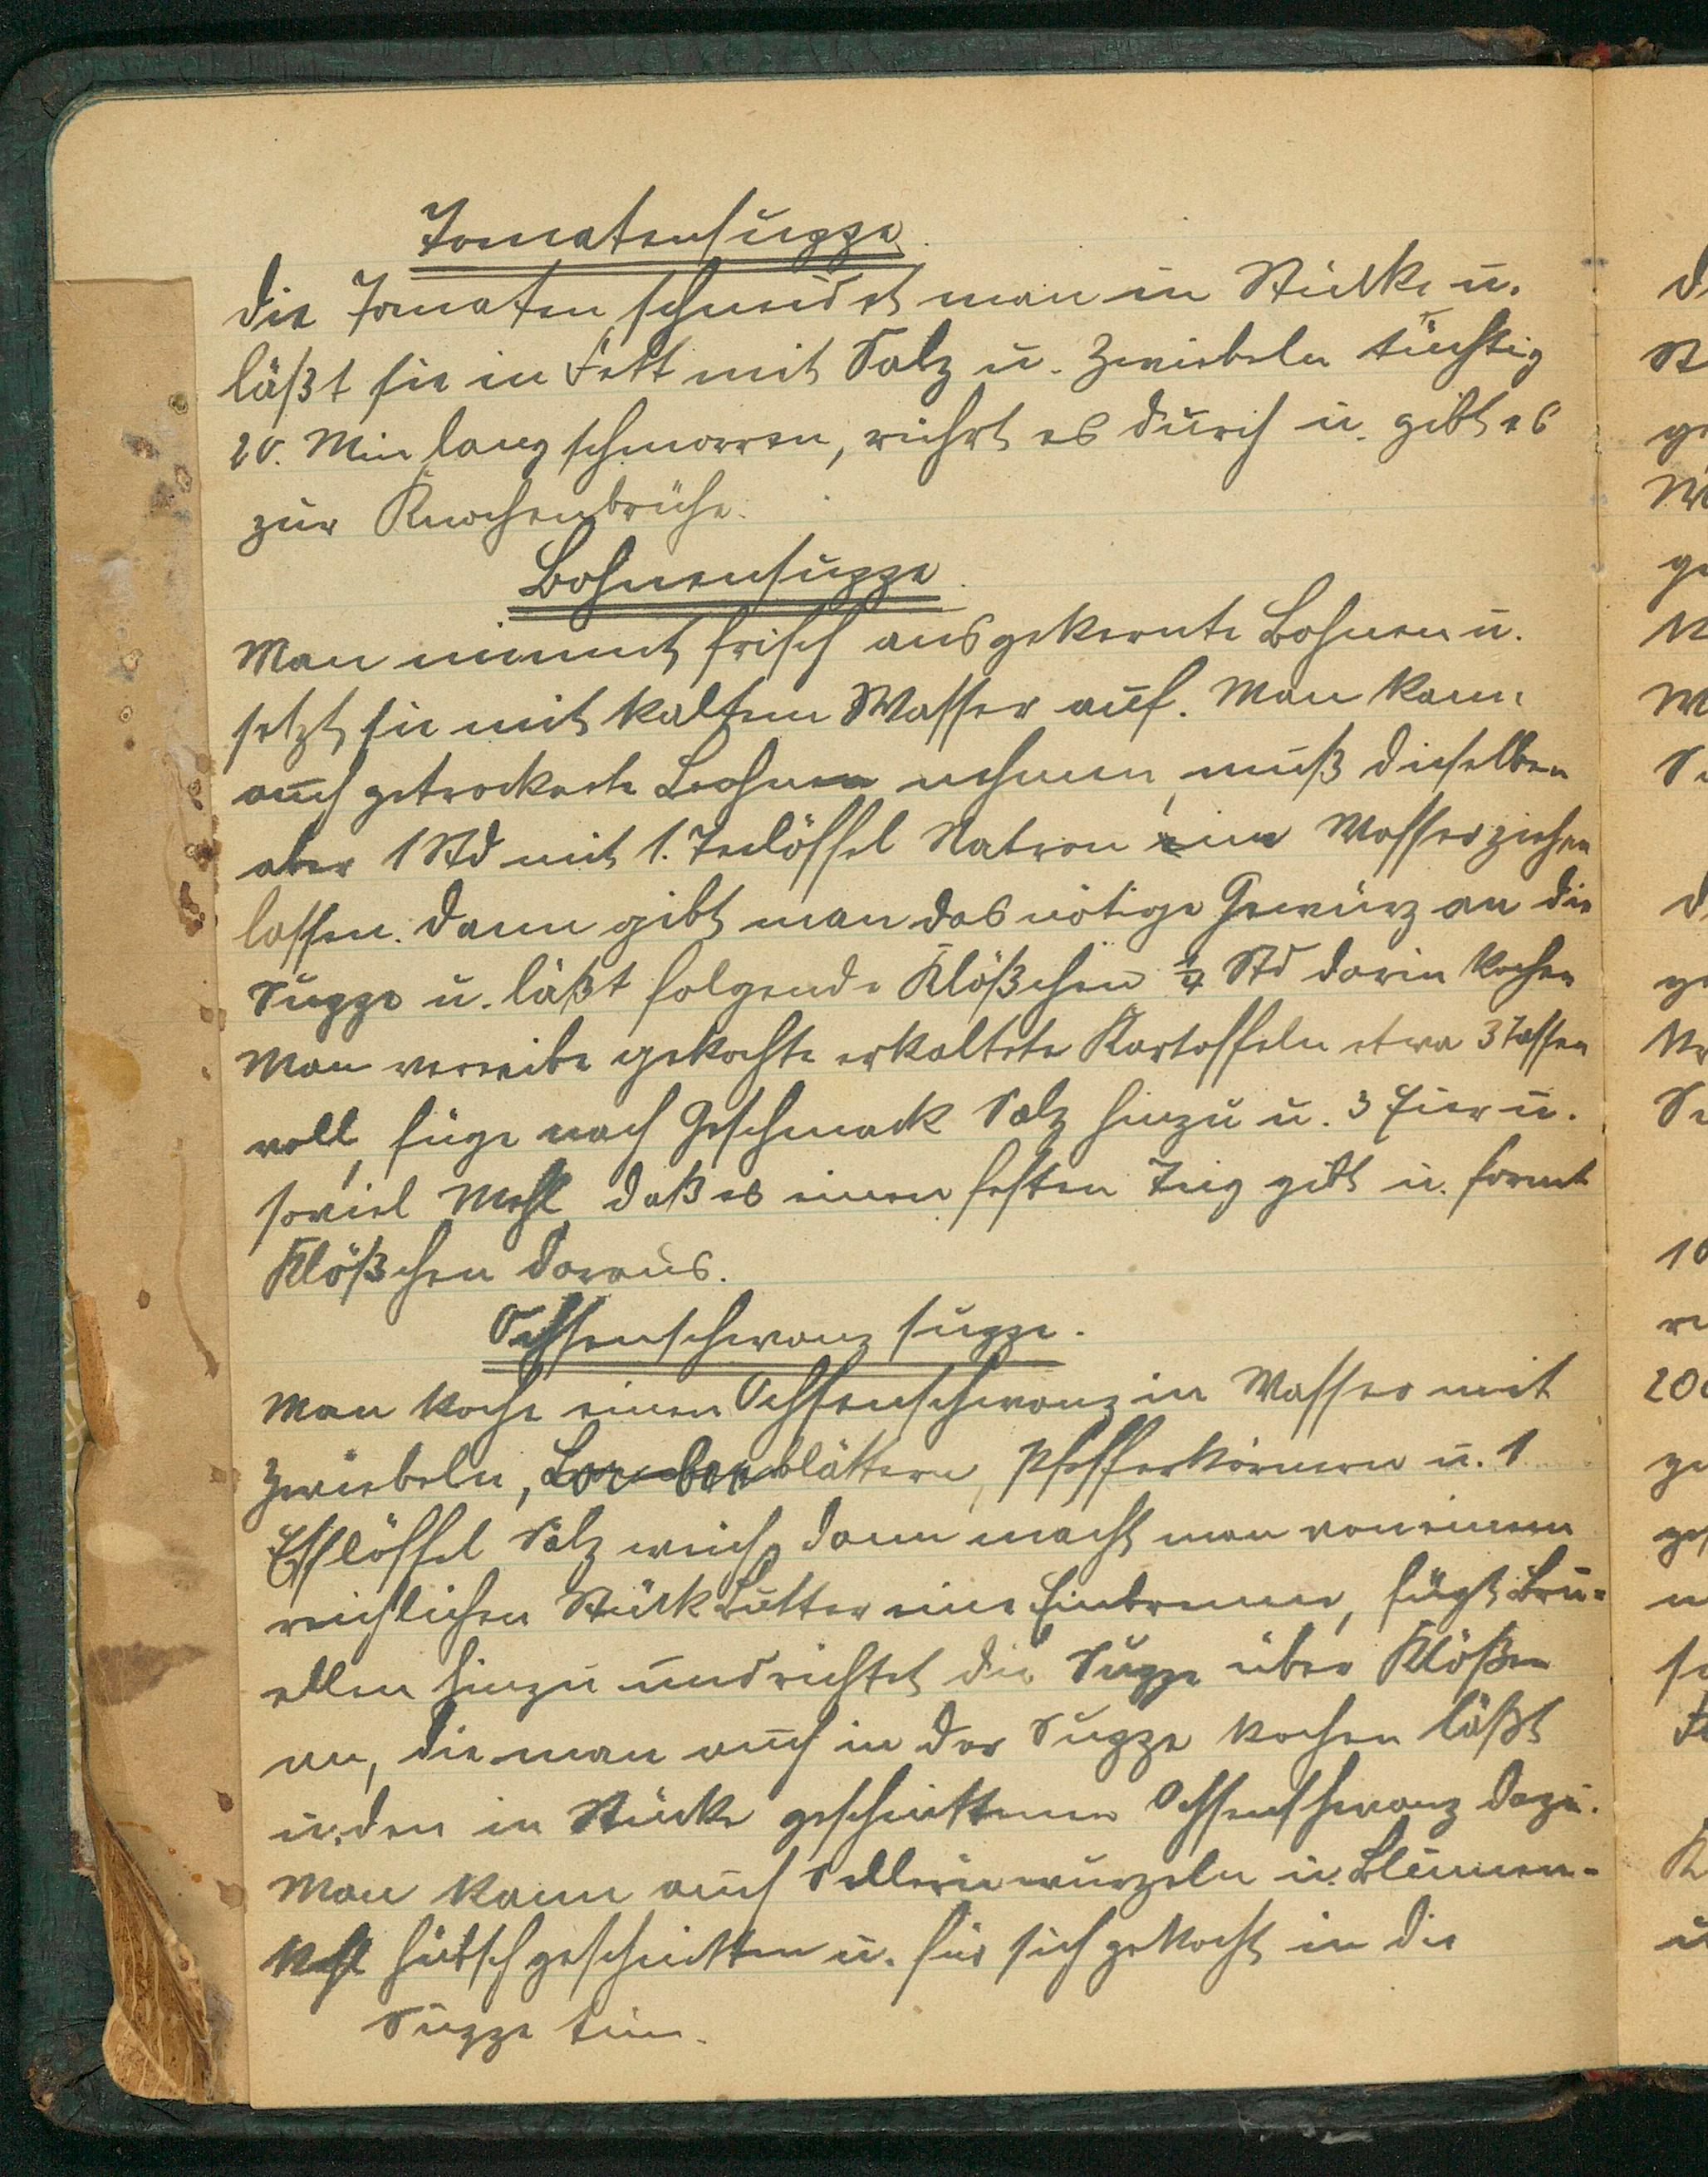 Tomatensuppe.
Die Tomaten schneidet man in Stücke u.
läßt sie in Fett mit Salz u. Zwiebeln tüchtig
20. Min lang schmorren, rührt es durch u. gibt es
zur Knochenbrühe.
Bohnensuppe.
Man nimmt frisch ausgekernte Bohnen u.
setzt sie mit kaltem Wasser auf. Man kann
auch getrocknete Bohnen nehmen, muß dieselben
aber 1 Std mit 1. Teelöffel Natron im Wasser ziehen
lassen. Dann gibt man das nötige Gewürz an die
Suppe u. läßt folgende Klößchen ¼ Std darin kochen
Man verreibe gekochte erkaltete Kartoffeln etwa 3 Tassen
voll, füge nach Geschmack Salz hinzu u. 3 Eier u.
soviel Mehl daß es einen festen Teig gibt u. formt
Klößchen daraus.
Ochsenschwanzsuppe.
Man koche einen Ochsenschwanz in Wasser mit
Zwiebeln, Lorberblättern, Pfefferkörnern u. 1
Eßlöffel Salz weich, dann macht man von einem
reichlichen Stück Butter eine Einbrenne, fügt
hinzu und richtet die Suppe über Klößen
an, die man auch in der Suppe kochen läßt
u. den in Stücke geschnittenen Ochsenschwanz dazu.
Man kann auchSelleriewurzeln u. Blumen-
kohl hübsch geschnitten u. für sich gekocht in die
Suppe tun.